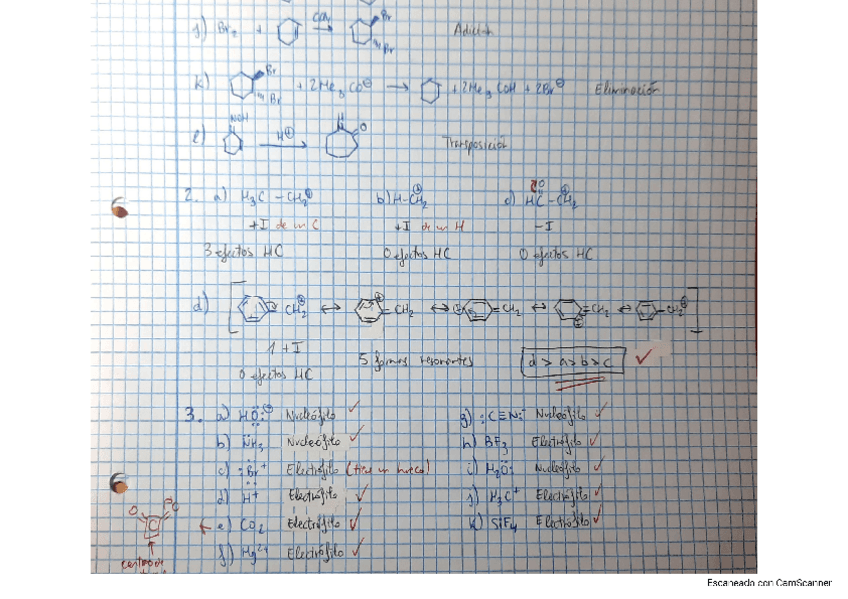 j) Br₂ + CCl₄ → Br Br Adición
k) Br Br + 2Me₃CO⊖ → + 2Me₃COH + 2Br⊖ Eliminación
l) NOH H⊕ → N O Transposición
2. a) H₃C – CH₂⊕ b) H – CH₂⊕ c) O HC – CH₂⊕
+I de un C +I de un H –I
3 efectos HC 0 efectos HC 0 efectos HC
d) [ CH₂⊕ ↔ ⊕ = CH₂ ↔ ⊕ = CH₂ ↔ ⊕ = CH₂ ↔ – CH₂⊕ ]
1 +I 5 formas resonantes d > a > b > c ✓
0 efectos HC
3. a) HO:⊖ Nucleófilo ✓ g) :C≡N:⁻ Nucleófilo ✓
b) NH₃ Nucleófilo ✓ h) BF₃ Electrófilo ✓
c) :Br⁺ Electrófilo (tiene un hueco) i) H₂O: Nucleófilo ✓
d) H⁺ Electrófilo ✓ j) H₃C⁺ Electrófilo ✓
O C O ← e) CO₂ Electrófilo ✓ k) SiF₄ Electrófilo ✓
f) Hg²⁺ Electrófilo ✓
Escaneado con CamScanner